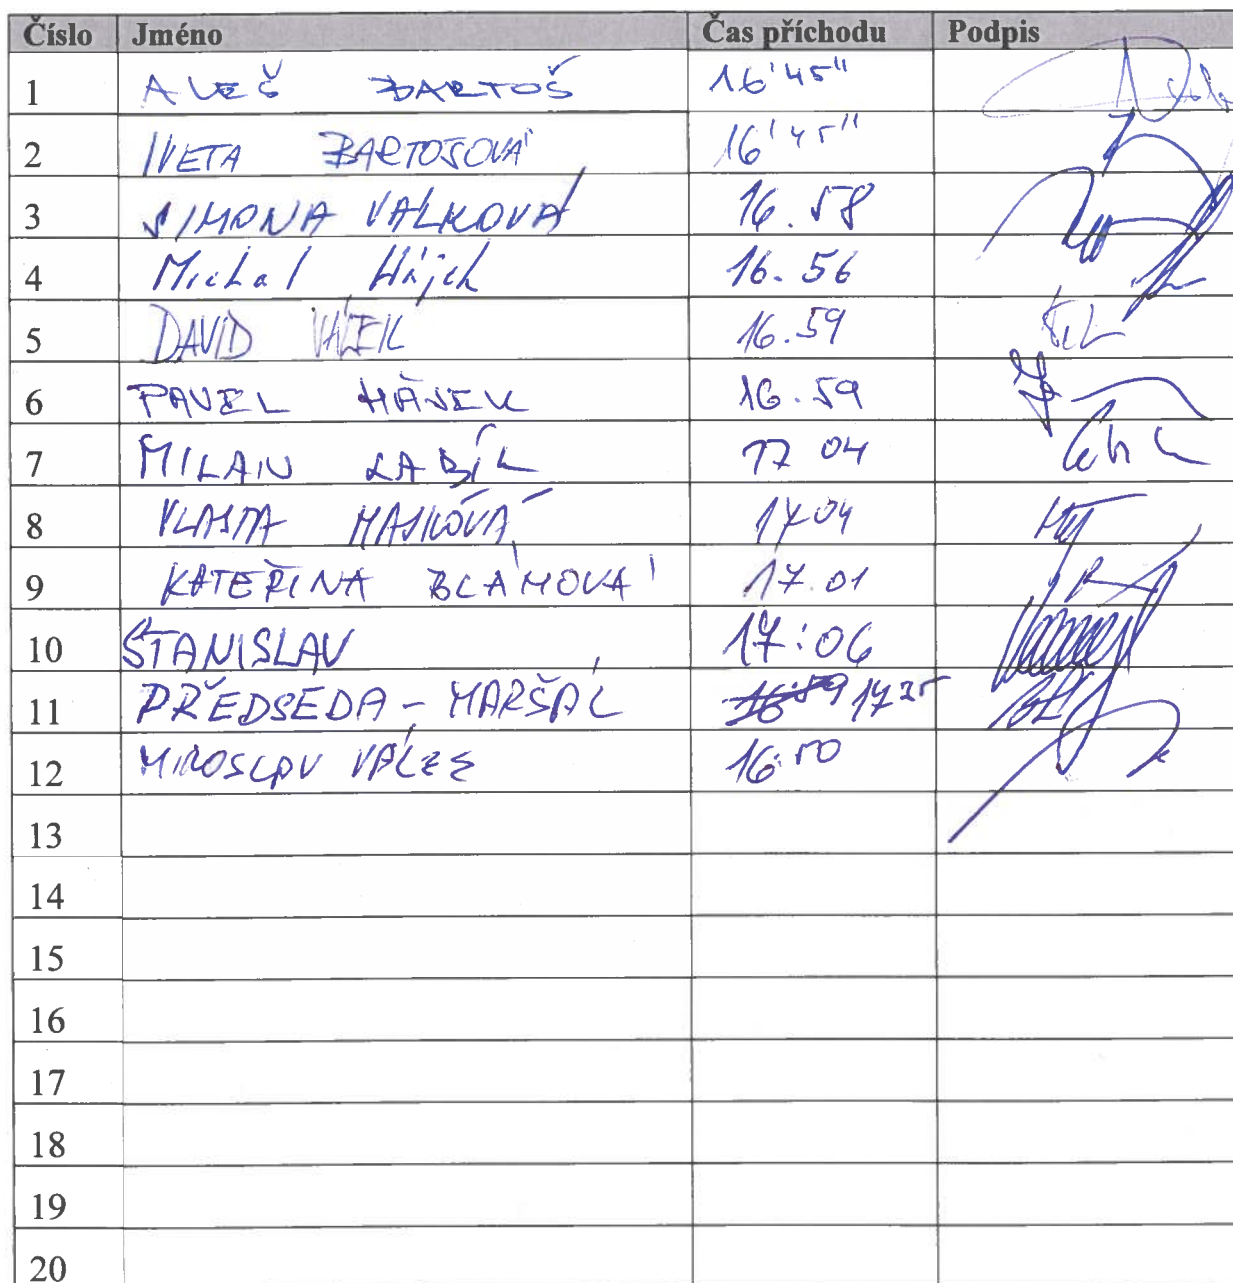 Číslo Jméno Čas příchodu Podpis
1 ALEŠ BARTOŠ 16'45"
2 IVETA BARTOŠOVÁ 16'45"
3 SIMONA VÁLKOVÁ 16.58
4 Michal Hájek 16.56
5 DAVID VÁLEK 16.59
6 PAVEL HÁJEK 16.59
7 MILAN LABÍK 17 04
8 VLASTA 17 04
9 KATEŘINA BLÁHOVÁ 17.01
10 STANISLAV 17:06
11 PŘEDSEDA - MARŠÁL 16:59 17 25
12 MIROSLAV VÁLEK 16:50
13
14
15
16
17
18
19
20